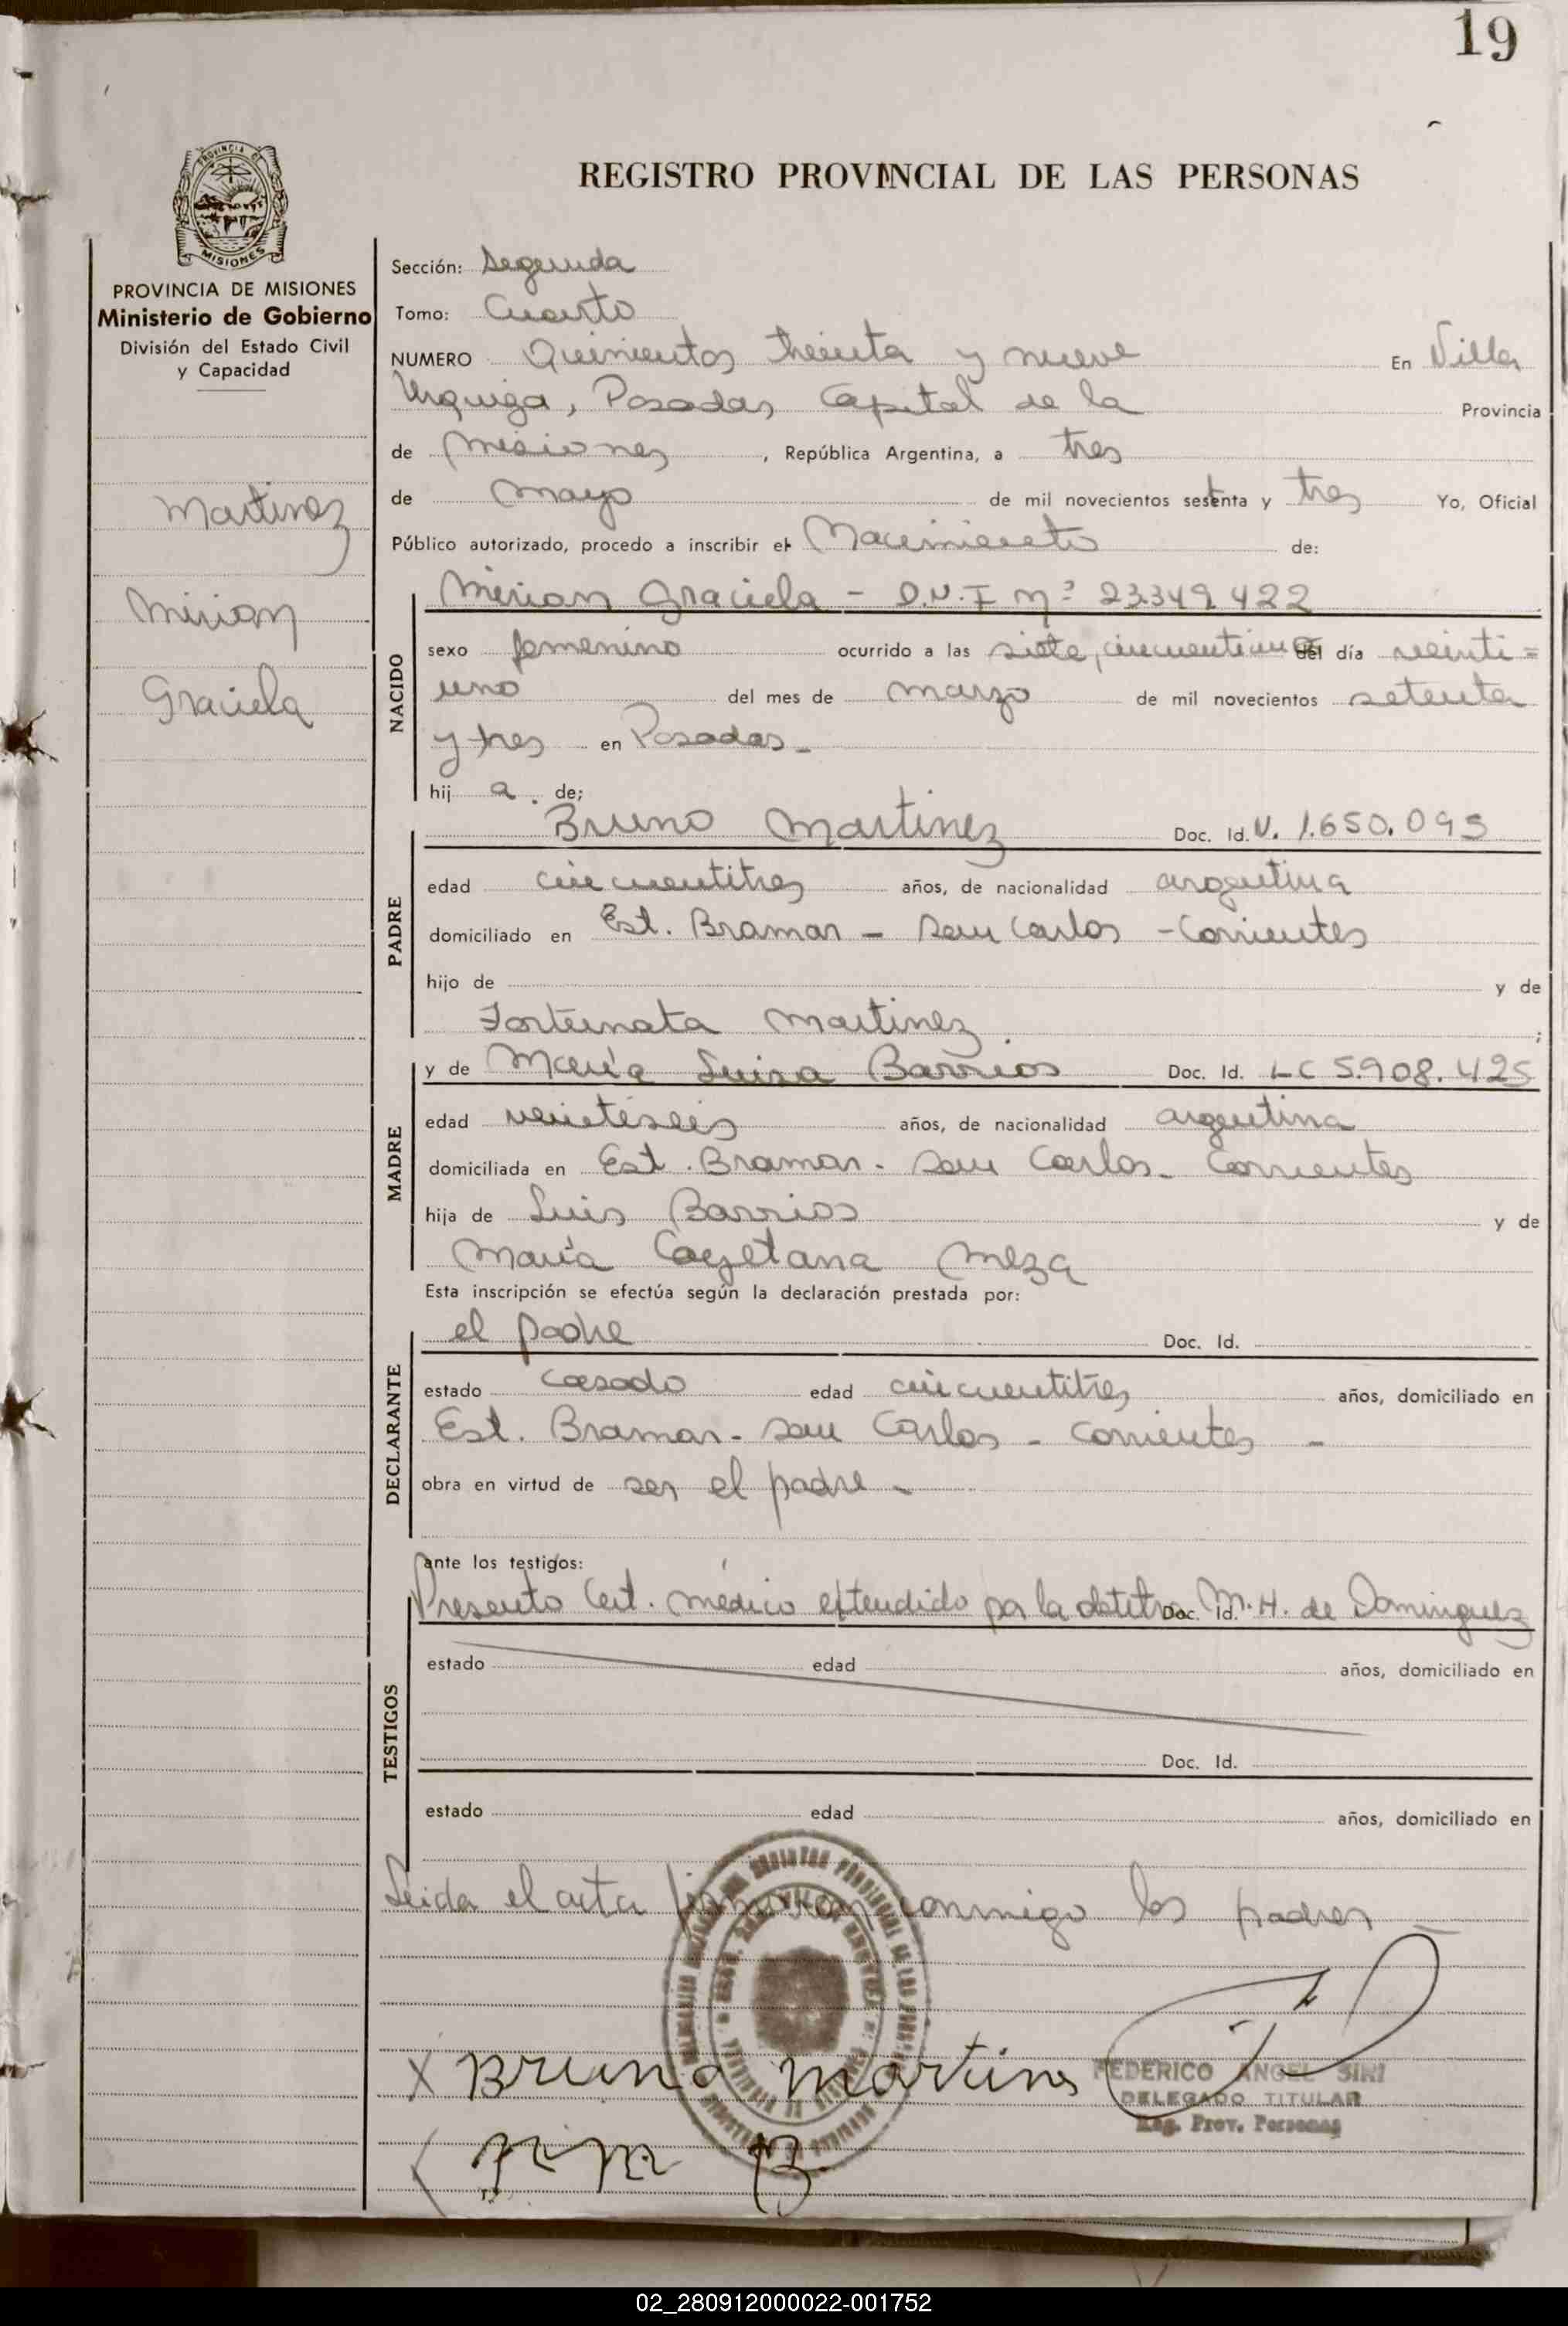 19
REGISTRO PROVINCIAL DE LAS PERSONAS
PROVINCIA DE
MISIONES
PROVINCIA DE MISIONES
Ministerio de Gobierno
División del Estado Civil
y Capacidad
Martinez
Mirian
Graciela
Sección: Segunda
Tomo: Cuarto
NUMERO Quinientos treinta y nueve En Villa
Urquiza, Posadas, Capital de la Provincia
de Misiones, República Argentina, a tres
de Mayo de mil novecientos setenta y tres Yo, Oficial
Público autorizado, procedo a inscribir el Nacimiento de:
NACIDO
Mirian Graciela - D.N.I Nº 23.349.422
sexo femenino ocurrido a las siete, del día veinti=
uno del mes de marzo de mil novecientos setenta
y tres en Posadas-
hij a. de;
PADRE
Bruno Martinez Doc. Id. V. 1.650.093
edad cincuentitres años, de nacionalidad argentina
domiciliado en Est. Bramar - San Carlos - Corrientes
hijo de y de
Fortunata Martinez ;
MADRE
y de María Luisa Barrios Doc. Id. LC 5.908.425
edad veintiseis años, de nacionalidad argentina
domiciliada en Est. Bramar. San Carlos. Corrientes
hija de Luis Barrios y de
María Cayetana Meza
Esta inscripción se efectúa según la declaración prestada por:
DECLARANTE
el padre Doc. Id.
estado casado edad cincuentitres años, domiciliado en
Est. Bramar - San Carlos - Corrientes -
obra en virtud de ser el padre -
ante los testigos:
TESTIGOS
Presento Cert. médico extendido por la obstetra Doc. Id. M. H. de Dominguez
estado edad años, domiciliado en
Doc. Id.
estado edad años, domiciliado en
Leida el acta firmaron conmigo los padres -
X Bruno Martines
FEDERICO ANGEL SIRI
DELEGADO TITULAR
Reg. Prov. Personas
02_280912000022-001752